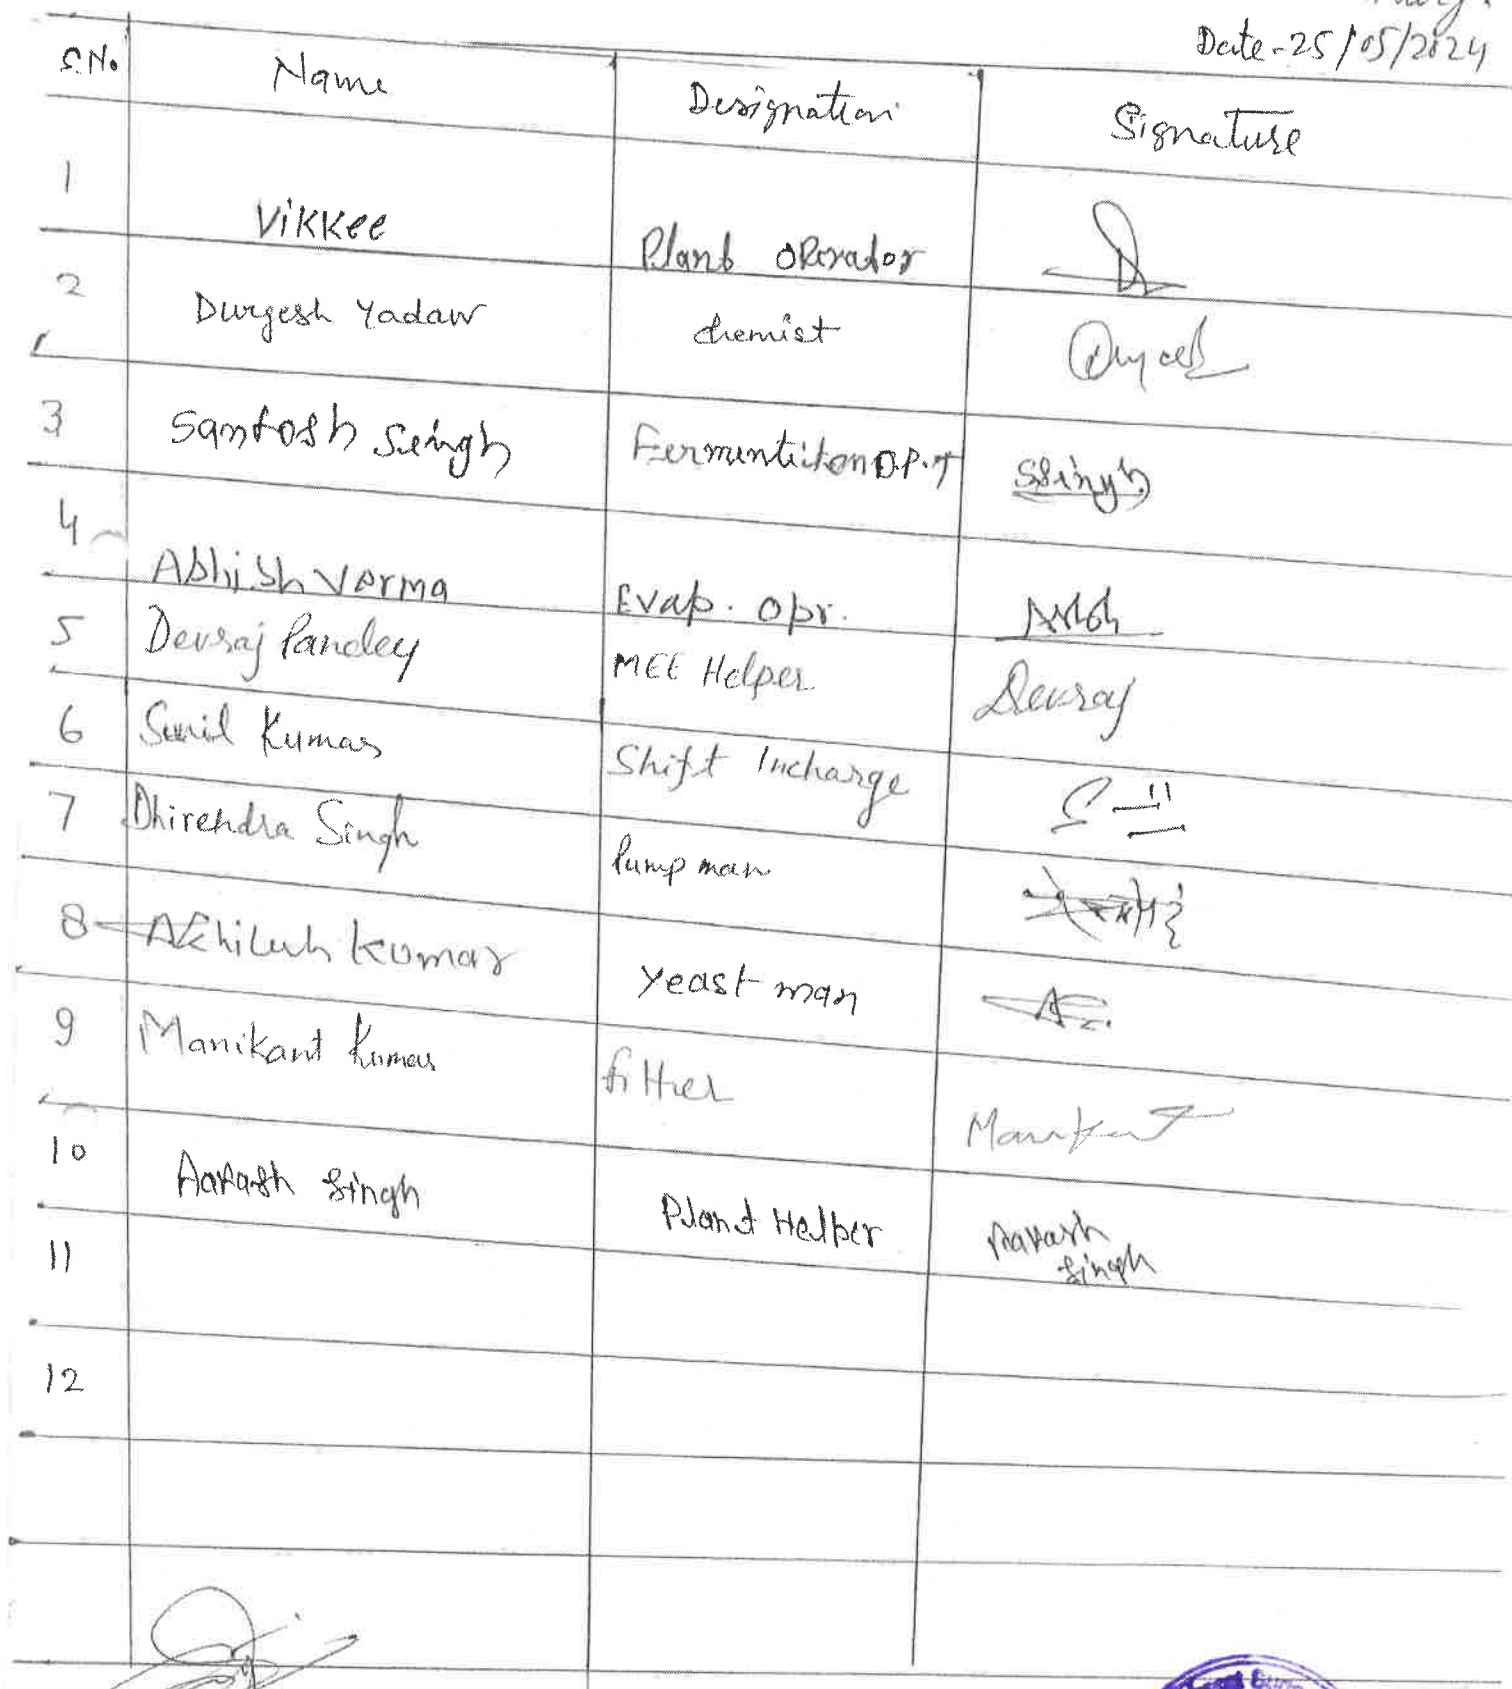 Date-25/05/2024
S.No. Name Designation Signature
1 Vikkee Plant operator
2 Durgesh Yadav chemist
3 Santosh Seingh Fermentiton D.P.T SSingh
4 Abhish Verma Evap. opr.
5 Devraj Pandey MEE Helper Devraj
6 Sunil Kumar Shift Incharge
7 Dhirendra Singh Pump man
8 Akhilesh Kumar Yeast man
9 Manikant Kumar fitter Manikant
10 Aakash Singh Plant Helper Aakash
Singh
11
12